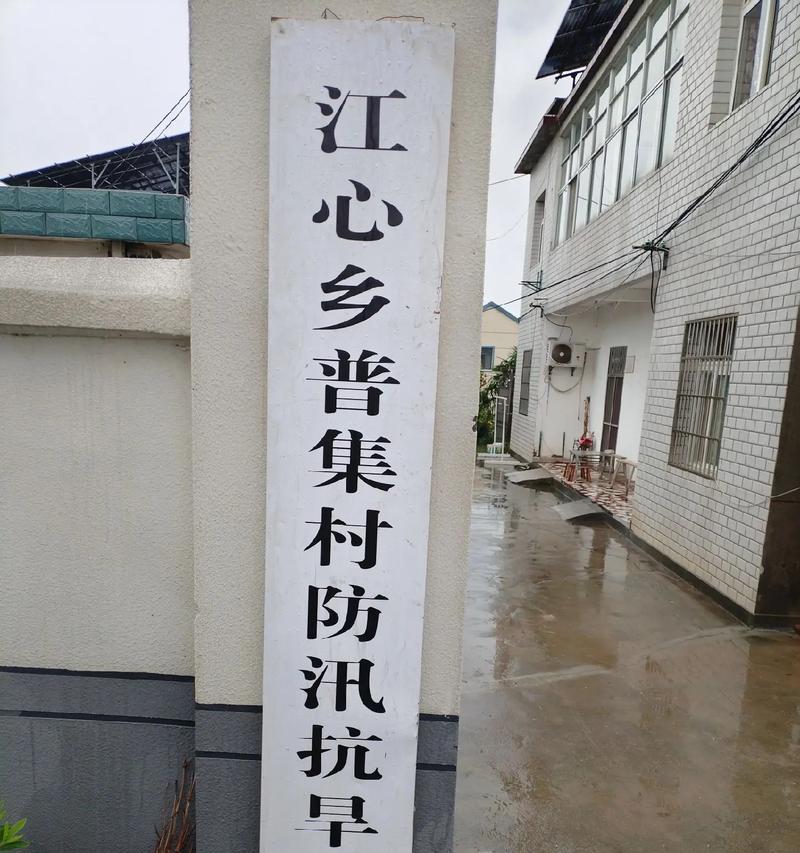 江心乡普集村防汛抗旱